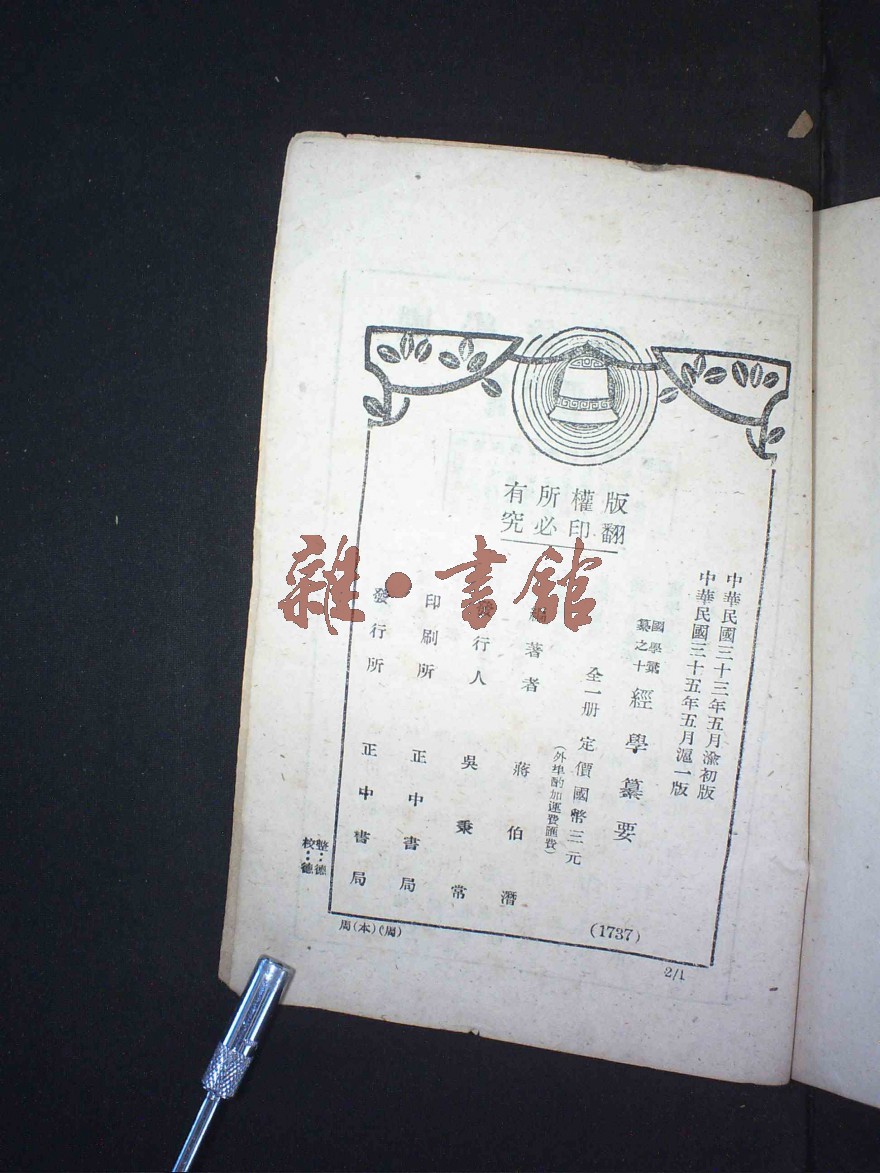 版權所有
翻印必究
中華民國三十三年五月渝初版
中華民國三十五年五月滬一版
國學彙
纂之十
經學纂要
全一册 定價國幣三元
(外埠酌加運費匯費)
編著者 蔣伯潛
發行人 吳秉常
印刷所 正中書局
發行所 正中書局
(1737)
整:德
校:德
周(本)(周)
2/1
雜·書館